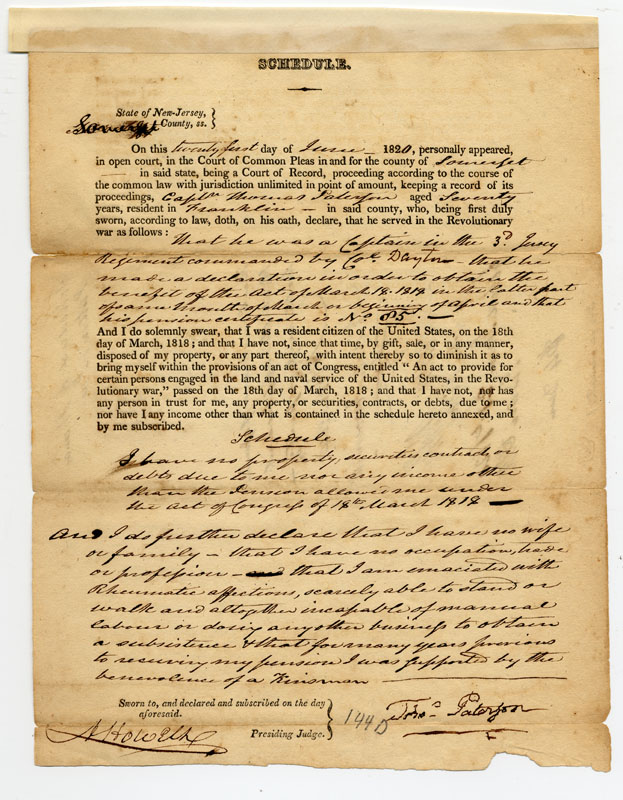 SCHEDULE.
State of New-Jersey,
Somerset County, ss.
On this twenty first day of June 1820, personally appeared,
in open court, in the Court of Common Pleas in and for the county of Somerset
— in said state, being a Court of Record, proceeding according to the course of
the common law with jurisdiction unlimited in point of amount, keeping a record of its
proceedings, Captn Thomas Paterson aged Seventy
years, resident in Franklin — in said county, who, being first duly
sworn, according to law, doth, on his oath, declare, that he served in the Revolutionary
war as follows :
that he was a Captain in the 3d Jersey
Regiment commanded by Col. Dayton — that he
made a declaration in order to obtain the
benefit of the Act of March 18. 1818 in the latter part
of same month of March or beginning of April and that
his pension certificate is No 85.
And I do solemnly swear, that I was a resident citizen of the United States, on the 18th
day of March, 1818 ; and that I have not, since that time, by gift, sale, or in any manner,
disposed of my property, or any part thereof, with intent thereby so to diminish it as to
bring myself within the provisions of an act of Congress, entitled “ An act to provide for
certain persons engaged in the land and naval service of the United States, in the Revo-
lutionary war,” passed on the 18th day of March, 1818 ; and that I have not, nor has
any person in trust for me, any property, or securities, contracts, or debts, due to me ;
nor have I any income other than what is contained in the schedule hereto annexed, and
by me subscribed.
Schedule
I have no property, securities contracts or
debts due to me nor any income other
than the Pension allowed me under
the act of Congress of 18th March 1818 —
And I do further declare that I have no wife
or family — that I have no occupation, trade
or profession — and that I am emaciated with
Rheumatic affections, scarcely able to stand or
walk and altogether incapable of manual
labour or doing any other business to obtain
a subsistence & that for many years previous
to receiving my pension I was supported by the
benevolence of a Kinsman —
Sworn to, and declared and subscribed on the day
aforesaid.
Thos. Paterson
144D
A Howell
Presiding Judge.